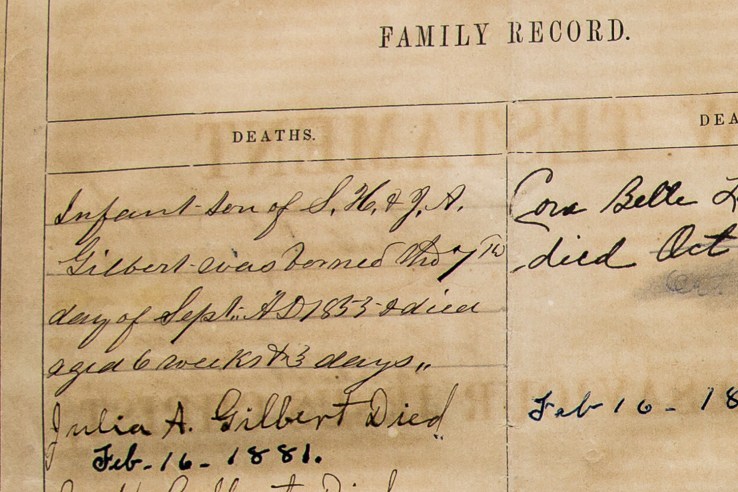 FAMILY RECORD.
DEATHS.
Infant son of S. H. & J. A.
Gilbert was borned the 7th
day of Sept. AD 1853 & died
aged 6 weeks & 3 days,,
Julia A. Gilbert Died
Feb. 16 - 1881.
Gilbert Died
DEA
Cora Belle
died Oct
Feb 16 - 18